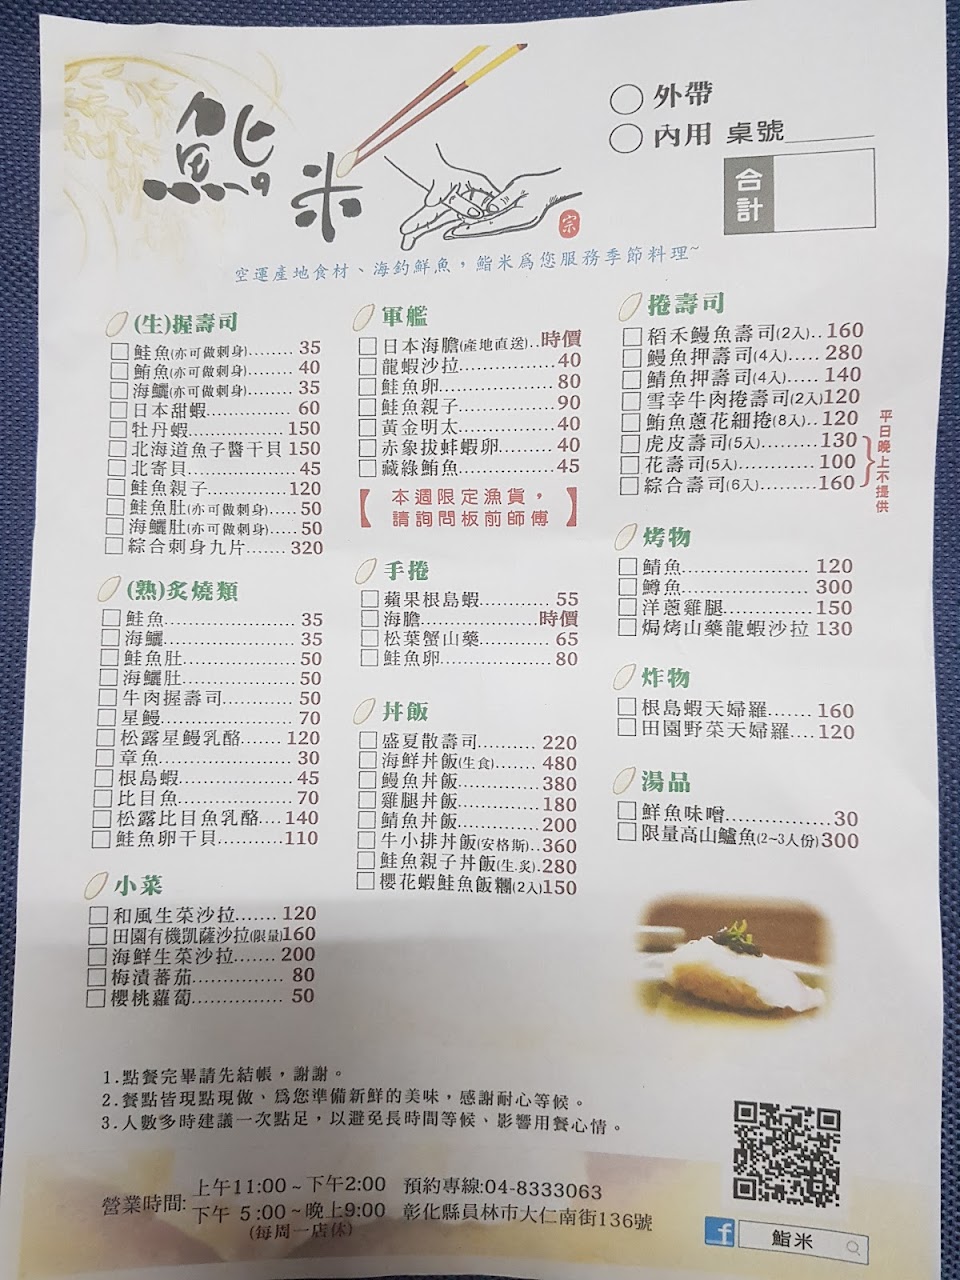 鮨米
宗
○ 外帶
○ 內用 桌號
合計
空運產地食材、海釣鮮魚，鮨米為您服務季節料理~
(生)握壽司
鮭魚(亦可做刺身)........ 35
鮪魚(亦可做刺身)........ 40
海鱺(亦可做刺身)........ 35
日本甜蝦.............. 60
牡丹蝦................ 150
北海道魚子醬干貝 150
北寄貝................ 45
鮭魚親子............ 120
鮭魚肚(亦可做刺身)..... 50
海鱺肚(亦可做刺身)..... 50
綜合刺身九片....... 320
(熟)炙燒類
鮭魚.................... 35
海鱺.................... 35
鮭魚肚................ 50
海鱺肚................ 50
牛肉握壽司.......... 50
星鰻.................... 70
松露星鰻乳酪....... 120
章魚.................... 30
根島蝦................ 45
比目魚................ 70
松露比目魚乳酪.... 140
鮭魚卵干貝.......... 110
小菜
和風生菜沙拉....... 120
田園有機凱薩沙拉(限量)160
海鮮生菜沙拉....... 200
梅漬蕃茄............. 80
櫻桃蘿蔔............. 50
軍艦
日本海膽(產地直送)..時價
龍蝦沙拉.............. 40
鮭魚卵................ 80
鮭魚親子.............. 90
黃金明太.............. 40
赤象拔蚌蝦卵........ 40
藏綠鮪魚.............. 45
【本週限定漁貨，
請詢問板前師傅】
手捲
蘋果根島蝦........... 55
海膽.....................時價
松葉蟹山藥........... 65
鮭魚卵................. 80
丼飯
盛夏散壽司......... 220
海鮮丼飯(生食)....... 480
鰻魚丼飯............ 380
雞腿丼飯............ 180
鯖魚丼飯............ 200
牛小排丼飯(安格斯)..360
鮭魚親子丼飯(生.炙).280
櫻花蝦鮭魚飯糰(2入)150
捲壽司
稻禾鰻魚壽司(2入).. 160
鰻魚押壽司(4入)..... 280
鯖魚押壽司(4入)..... 140
雪幸牛肉捲壽司(2入)120
鮪魚蔥花細捲(8入).. 120
虎皮壽司(5入)........ 130
花壽司(5入)........... 100
綜合壽司(6入)........ 160
平日晚上不提供
烤物
鯖魚................... 120
鱒魚................... 300
洋蔥雞腿............. 150
焗烤山藥龍蝦沙拉 130
炸物
根島蝦天婦羅....... 160
田園野菜天婦羅.... 120
湯品
鮮魚味噌................30
限量高山鱸魚(2~3人份)300
1.點餐完畢請先結帳，謝謝。
2.餐點皆現點現做、為您準備新鮮的美味，感謝耐心等候。
3.人數多時建議一次點足，以避免長時間等候、影響用餐心情。
營業時間: 上午11:00 ~ 下午2:00 預約專線:04-8333063
下午 5:00 ~ 晚上9:00 彰化縣員林市大仁南街136號
(每周一店休)
f 鮨米